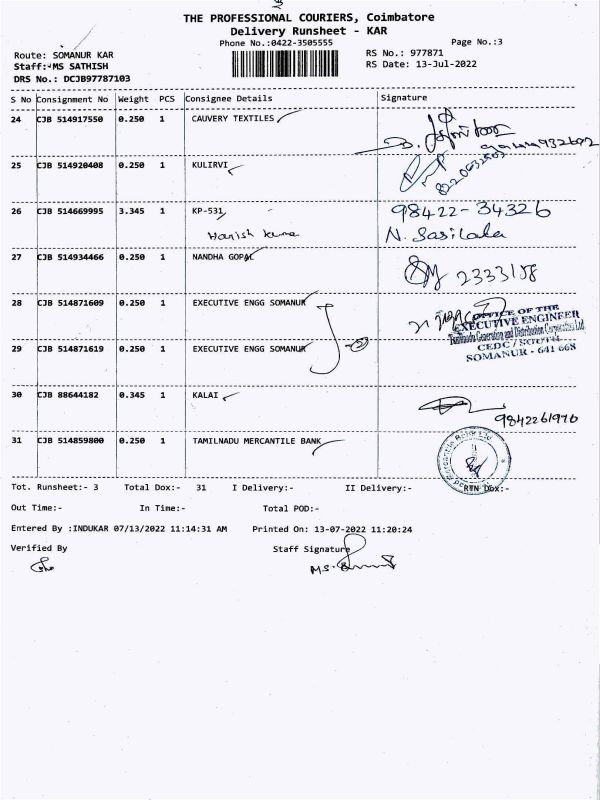 THE PROFESSIONAL COURIERS, Coimbatore
Delivery Runsheet - KAR
Phone No.:0422-3505555
Page No.:3
Route: SOMANUR KAR
RS No.: 977871
Staff: MS SATHISH
RS Date: 13-Jul-2022
DRS No.: DCJB97787103
S No Consignment No Weight PCS Consignee Details Signature
24 CJB 514917550 0.250 1 CAUVERY TEXTILES
25 CJB 514920408 0.250 1 KULIRVI
26 CJB 514669995 3.345 1 KP-531 98422-34326
Harish N. Sasikala
27 CJB 514934466 0.250 1 NANDHA GOPAL
2333158
28 CJB 514871609 0.250 1 EXECUTIVE ENGG SOMANUR
OFFICE OF THE
EXECUTIVE ENGINEER
Tamilnadu Generation and Distribution Corporation Ltd
CEDC / SOUTH
SOMANUR - 641 668
29 CJB 514871619 0.250 1 EXECUTIVE ENGG SOMANUR
30 CJB 88644182 0.345 1 KALAI
9842261970
31 CJB 514859800 0.250 1 TAMILNADU MERCANTILE BANK
Tot. Runsheet:- 3 Total Dox:- 31 I Delivery:- II Delivery:- RTN Dox:-
Out Time:- In Time:- Total POD:-
Entered By :INDUKAR 07/13/2022 11:14:31 AM Printed On: 13-07-2022 11:20:24
Verified By Staff Signature